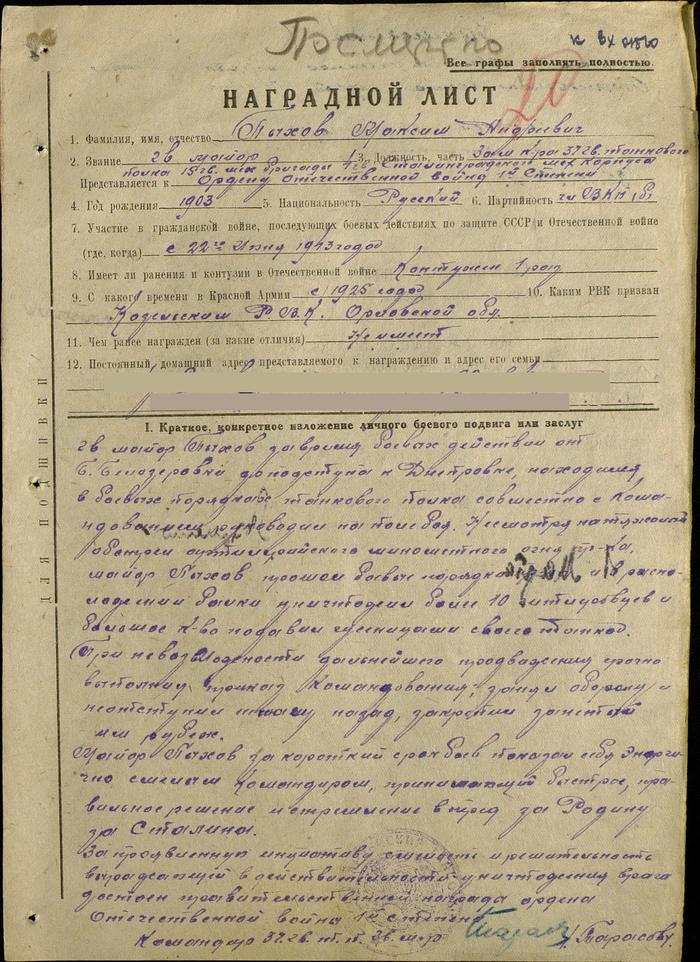 Посмертно
к вх
Все графы заполнять полностью.
20
НАГРАДНОЙ ЛИСТ
1. Фамилия, имя, отчество Пыхов Максим Андреевич
2. Звание гв майор 3. Должность, часть Зам к-ра 37 гв. танкового
полка 15 гв. мех бригады 4 гв Сталинградского мех корпуса
Представляется к Ордену Отечественной войны 1й Степени
4. Год рождения 1903 5. Национальность Русский 6. Партийность чл ВКП(б)
7. Участие в гражданской войне, последующих боевых действиях по защите СССР и Отечественной войне
(где, когда) с 22го Июня 1943 года
8. Имеет ли ранения и контузии в Отечественной войне Контужен 1 раз
9. С какого времени в Красной Армии с 1925 года 10. Каким РВК призван
Козельским Р.В.К. Орловской обл.
11. Чем ранее награжден (за какие отличия) Не имеет
12. Постоянный домашний адрес представляемого к награждению и адрес его семьи
I. Краткое, конкретное изложение личного боевого подвига или заслуг
гв майор Пыхов за время боевых действий от
Б. Белозеровки до подступа к Днепровке, находился
в боевых порядках танкового полка совместно с кома-
ндованием руководил на поле боя. Несмотря на тяжелый
обстрел артиллерийского минометного огня пр-ка,
майор Пыхов прошел боевые порядки и в распо-
ложении балки уничтожил более 10 и
большое к-во подавил гусеницами своего танка.
При невозможности дальнейшего продвижения срочно
выполнил приказ командования, занял оборону и
не отступил шагу назад, закрепил занятый
им рубеж.
Майор Пыхов за короткий срок боев показал себя энерги-
чно смелым командиром, принимающий быстрое, пра-
вильное решение и стремление вперед за Родину
за Сталина.
За проявленную инициативу смелость и решительность
в действительности уничтожения врага
достоин правительственной награда ордена
Отечественной война 1й степени
Командир 37 гв. т. п. гв. м-р /Тарасов/
ДЛЯ ПОДШИВКИ